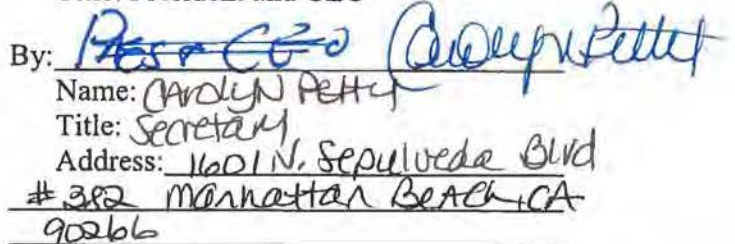 By: Pres & CEO Carolyn Petty
Name: CAROLYN PETTY
Title: Secretary
Address: 1601 N. Sepulveda Blvd
# 382 Manhattan BEACH, CA
90266